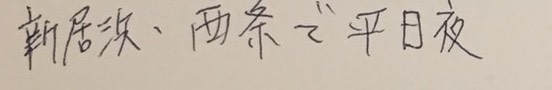 新居浜、西条で平日夜